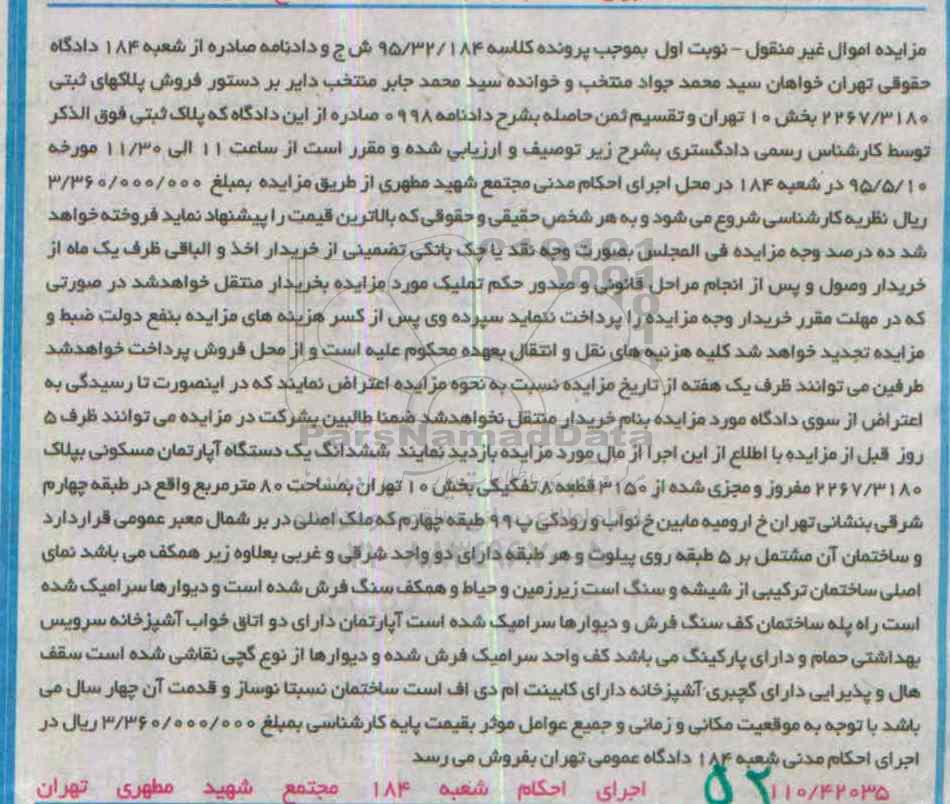 مزایده اموال غیر منقول – نوبت اول بموجب پرونده کلاسه ۹۵/۳۲/۱۸۴ ش ج و دادنامه صادره از شعبه ۱۸۴ دادگاه
حقوقی تهران خواهان سید محمد جواد منتخب و خوانده سید محمد جابر منتخب دایر بر دستور فروش پلاکهای ثبتی
۲۲۶۷/۳۱۸۰ بخش ۱۰ تهران و تقسیم ثمن حاصله بشرح دادنامه ۰۹۹۸ صادره از این دادگاه که پلاک ثبتی فوق الذکر
توسط کارشناس رسمی دادگستری بشرح زیر توصیف و ارزیابی شده و مقرر است از ساعت ۱۱ الی ۱۱/۳۰ مورخه
۹۵/۵/۱۰ در شعبه ۱۸۴ در محل اجرای احکام مدنی مجتمع شهید مطهری از طریق مزایده بمبلغ ۳/۳۶۰/۰۰۰/۰۰۰
ریال نظریه کارشناسی شروع می شود و به هر شخص حقیقی و حقوقی که بالاترین قیمت را پیشنهاد نماید فروخته خواهد
شد ده درصد وجه مزایده فی المجلس بصورت وجه نقد یا چک بانکی تضمینی از خریدار اخذ و الباقی ظرف یک ماه از
خریدار وصول و پس از انجام مراحل قانونی و صدور حکم تملیک مورد مزایده بخریدار منتقل خواهدشد در صورتی
که در مهلت مقرر خریدار وجه مزایده را پرداخت ننماید سپرده وی پس از کسر هزینه های مزایده بنفع دولت ضبط و
مزایده تجدید خواهد شد کلیه هزنیه های نقل و انتقال بعهده محکوم علیه است و از محل فروش پرداخت خواهدشد
طرفین می توانند ظرف یک هفته از تاریخ مزایده نسبت به نحوه مزایده اعتراض نمایند که در اینصورت تا رسیدگی به
اعتراض از سوی دادگاه مورد مزایده بنام خریدار منتقل نخواهدشد ضمنا طالبین بشرکت در مزایده می توانند ظرف ۵
روز قبل از مزایده با اطلاع از این اجرا از مال مورد مزایده بازدید نمایند ششدانگ یک دستگاه آپارتمان مسکونی بپلاک
۲۲۶۷/۳۱۸۰ مفروز و مجزی شده از ۳۱۵۰ قطعه ۸ تفکیکی بخش ۱۰ تهران بمساحت ۸۰ مترمربع واقع در طبقه چهارم
شرقی بنشانی تهران خ ارومیه مابین خ نواب و رودکی پ ۹۹ طبقه چهارم که ملک اصلی در بر شمال معبر عمومی قراردارد
و ساختمان آن مشتمل بر ۵ طبقه روی پیلوت و هر طبقه دارای دو واحد شرقی و غربی بعلاوه زیر همکف می باشد نمای
اصلی ساختمان ترکیبی از شیشه و سنگ است زیرزمین و حیاط و همکف سنگ فرش شده است و دیوارها سرامیک شده
است راه پله ساختمان کف سنگ فرش و دیوارها سرامیک شده است آپارتمان دارای دو اتاق خواب آشپزخانه سرویس
بهداشتی حمام و دارای پارکینگ می باشد کف واحد سرامیک فرش شده و دیوارها از نوع گچی نقاشی شده است سقف
هال و پذیرایی دارای گچبری آشپزخانه دارای کابینت ام دی اف است ساختمان نسبتا نوساز و قدمت آن چهار سال می
باشد با توجه به موقعیت مکانی و زمانی و جمیع عوامل موثر بقیمت پایه کارشناسی بمبلغ ۳/۳۶۰/۰۰۰/۰۰۰ ریال در
اجرای احکام مدنی شعبه ۱۸۴ دادگاه عمومی تهران بفروش می رسد
۱۱۰/۴۲۰۳۵ ۵۲ اجرای احکام شعبه ۱۸۴ مجتمع شهید مطهری تهران
ParsNamadData